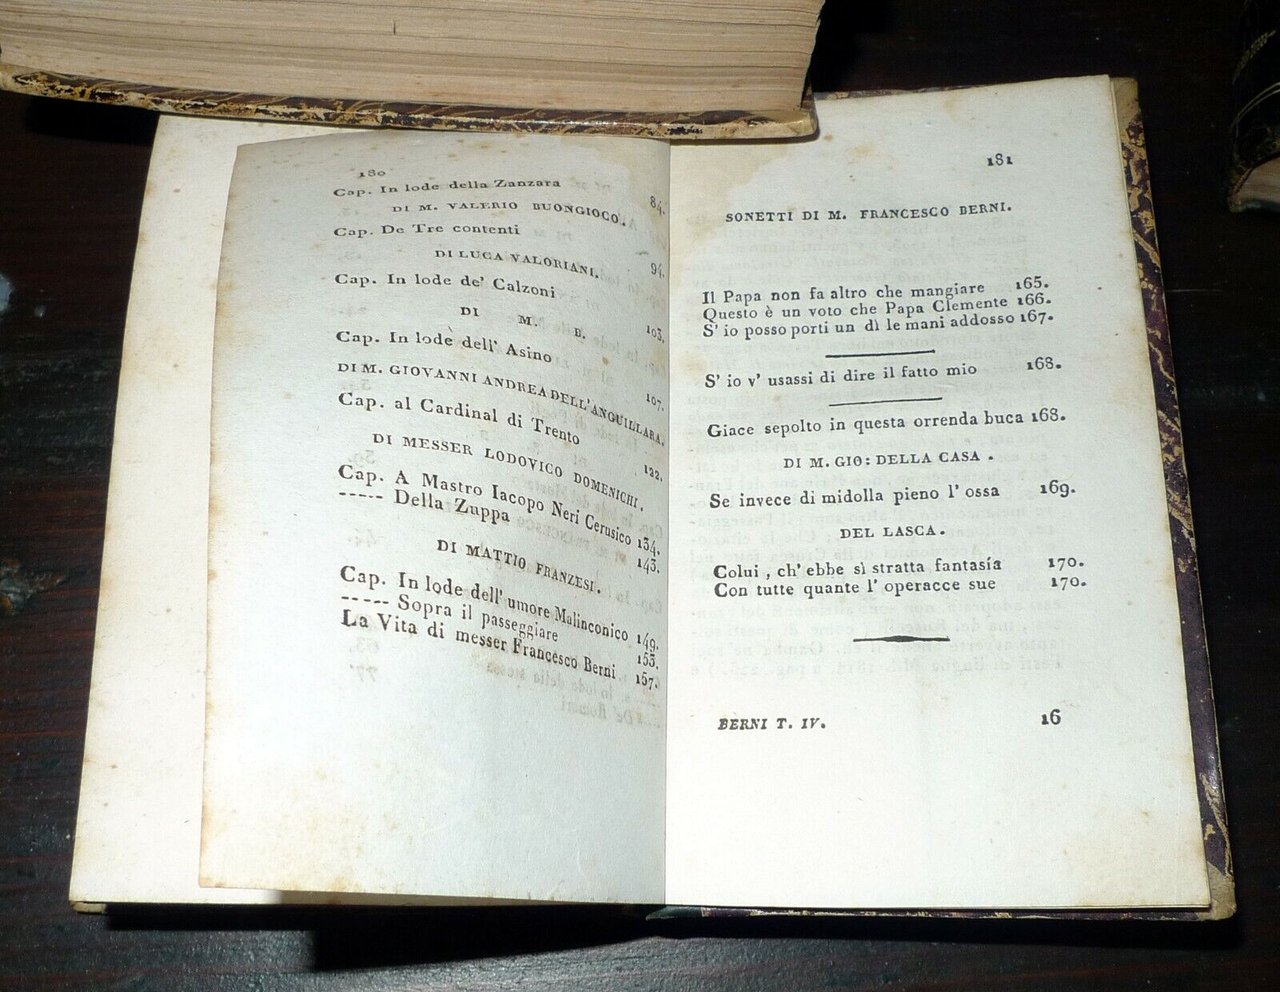 180
Cap. In lode della Zanzara 84.
DI M. VALERIO BUONGIOCO.
Cap. De Tre contenti 94.
DI LUCA VALORIANI.
Cap. In lode de' Calzoni 103.
DI M. B.
Cap. In lodè dell' Asino 107.
DI M. GIOVANNI ANDREA DELL'ANGUILLARA.
Cap. al Cardinal di Trento 122.
DI MESSER LODOVICO DOMENICHI.
Cap. A Mastro Iacopo Neri Cerusico 134.
----- Della Zuppa 143.
DI MATTIO FRANZESI.
Cap. In lode dell' umore Malinconico 149.
----- Sopra il passeggiare 153.
La Vita di messer Francesco Berni 157.
181
SONETTI DI M. FRANCESCO BERNI.
Il Papa non fa altro che mangiare 165.
Questo è un voto che Papa Clemente 166.
S' io posso porti un dì le mani addosso 167.
S' io v' usassi di dire il fatto mio 168.
Giace sepolto in questa orrenda buca 168.
DI M. GIO: DELLA CASA .
Se invece di midolla pieno l' ossa 169.
DEL LASCA.
Colui , ch' ebbe sì stratta fantasía 170.
Con tutte quante l' operacce sue 170.
BERNI T. IV. 16